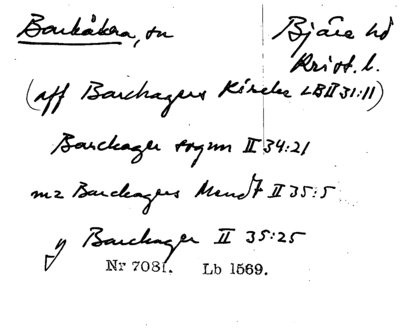 Barkåkra, sn Bjäre hd
Krist. l.
(aff Barchagers Kircke LB II 31:11)
Barckager sognn II 34:21
mz Barckagers Mendt II 35:5
y Barckager II 35:25
Nr 7081. Lb 1569.